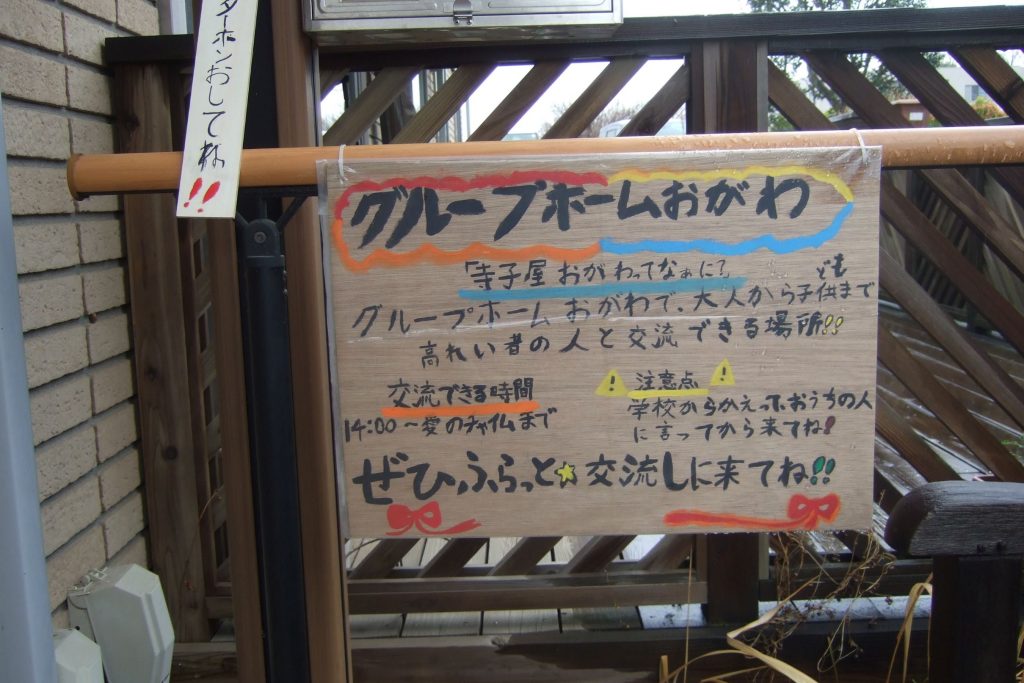 ターホンおしてね!!
グループホームおがわ
「寺子屋 おがわってなぁに?」
グループホーム おがわで、大人から子供まで
ども
高れい者の人と交流できる場所!!
交流できる時間
14:00～愛のチャイムまで
! 注意点 !
学校からかえって、おうちの人
に言ってから来てね!
ぜひ、ふらっと☆交流しに来てね!!